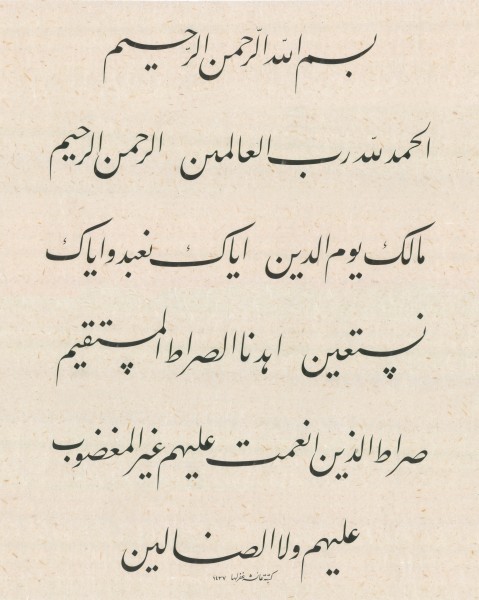 بسم الله الرحمن الرحيم
الحمد لله رب العالمين الرحمن الرحيم
مالك يوم الدين اياك نعبد واياك
نستعين اهدنا الصراط المستقيم
صراط الذين انعمت عليهم غير المغضوب
عليهم ولا الضالين
١٤٣٧